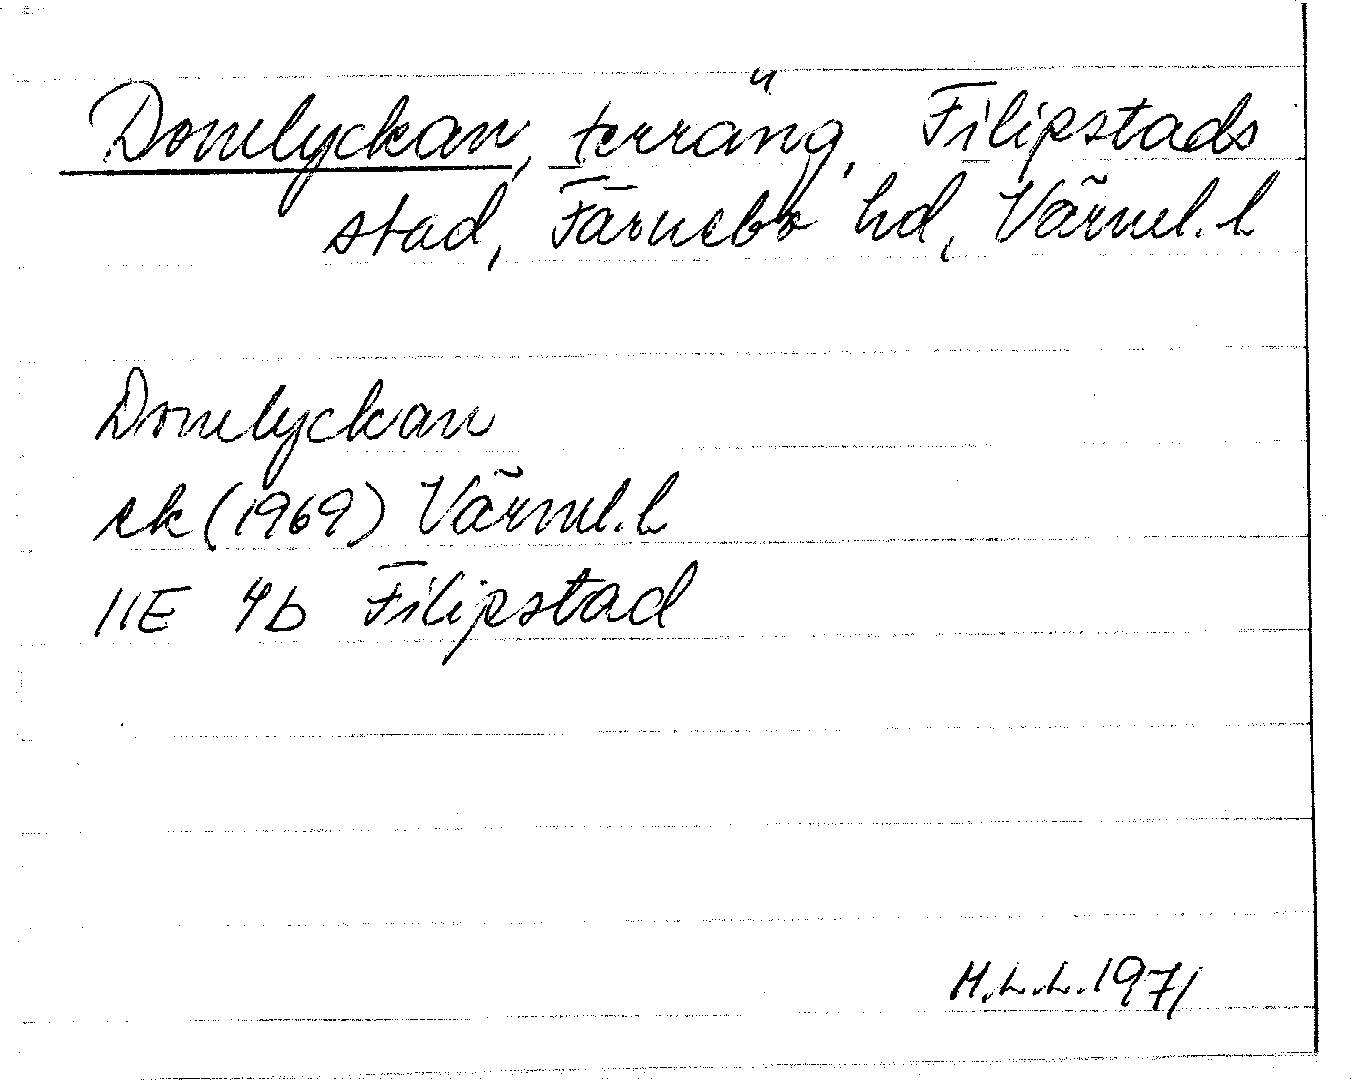 Domlyckan, terräng, Filipstads
stad, Färnebo hd, Värml. l
Domlyckan
ek (1969) Värml. l
11E 4b Filipstad
H.L.L. 1971